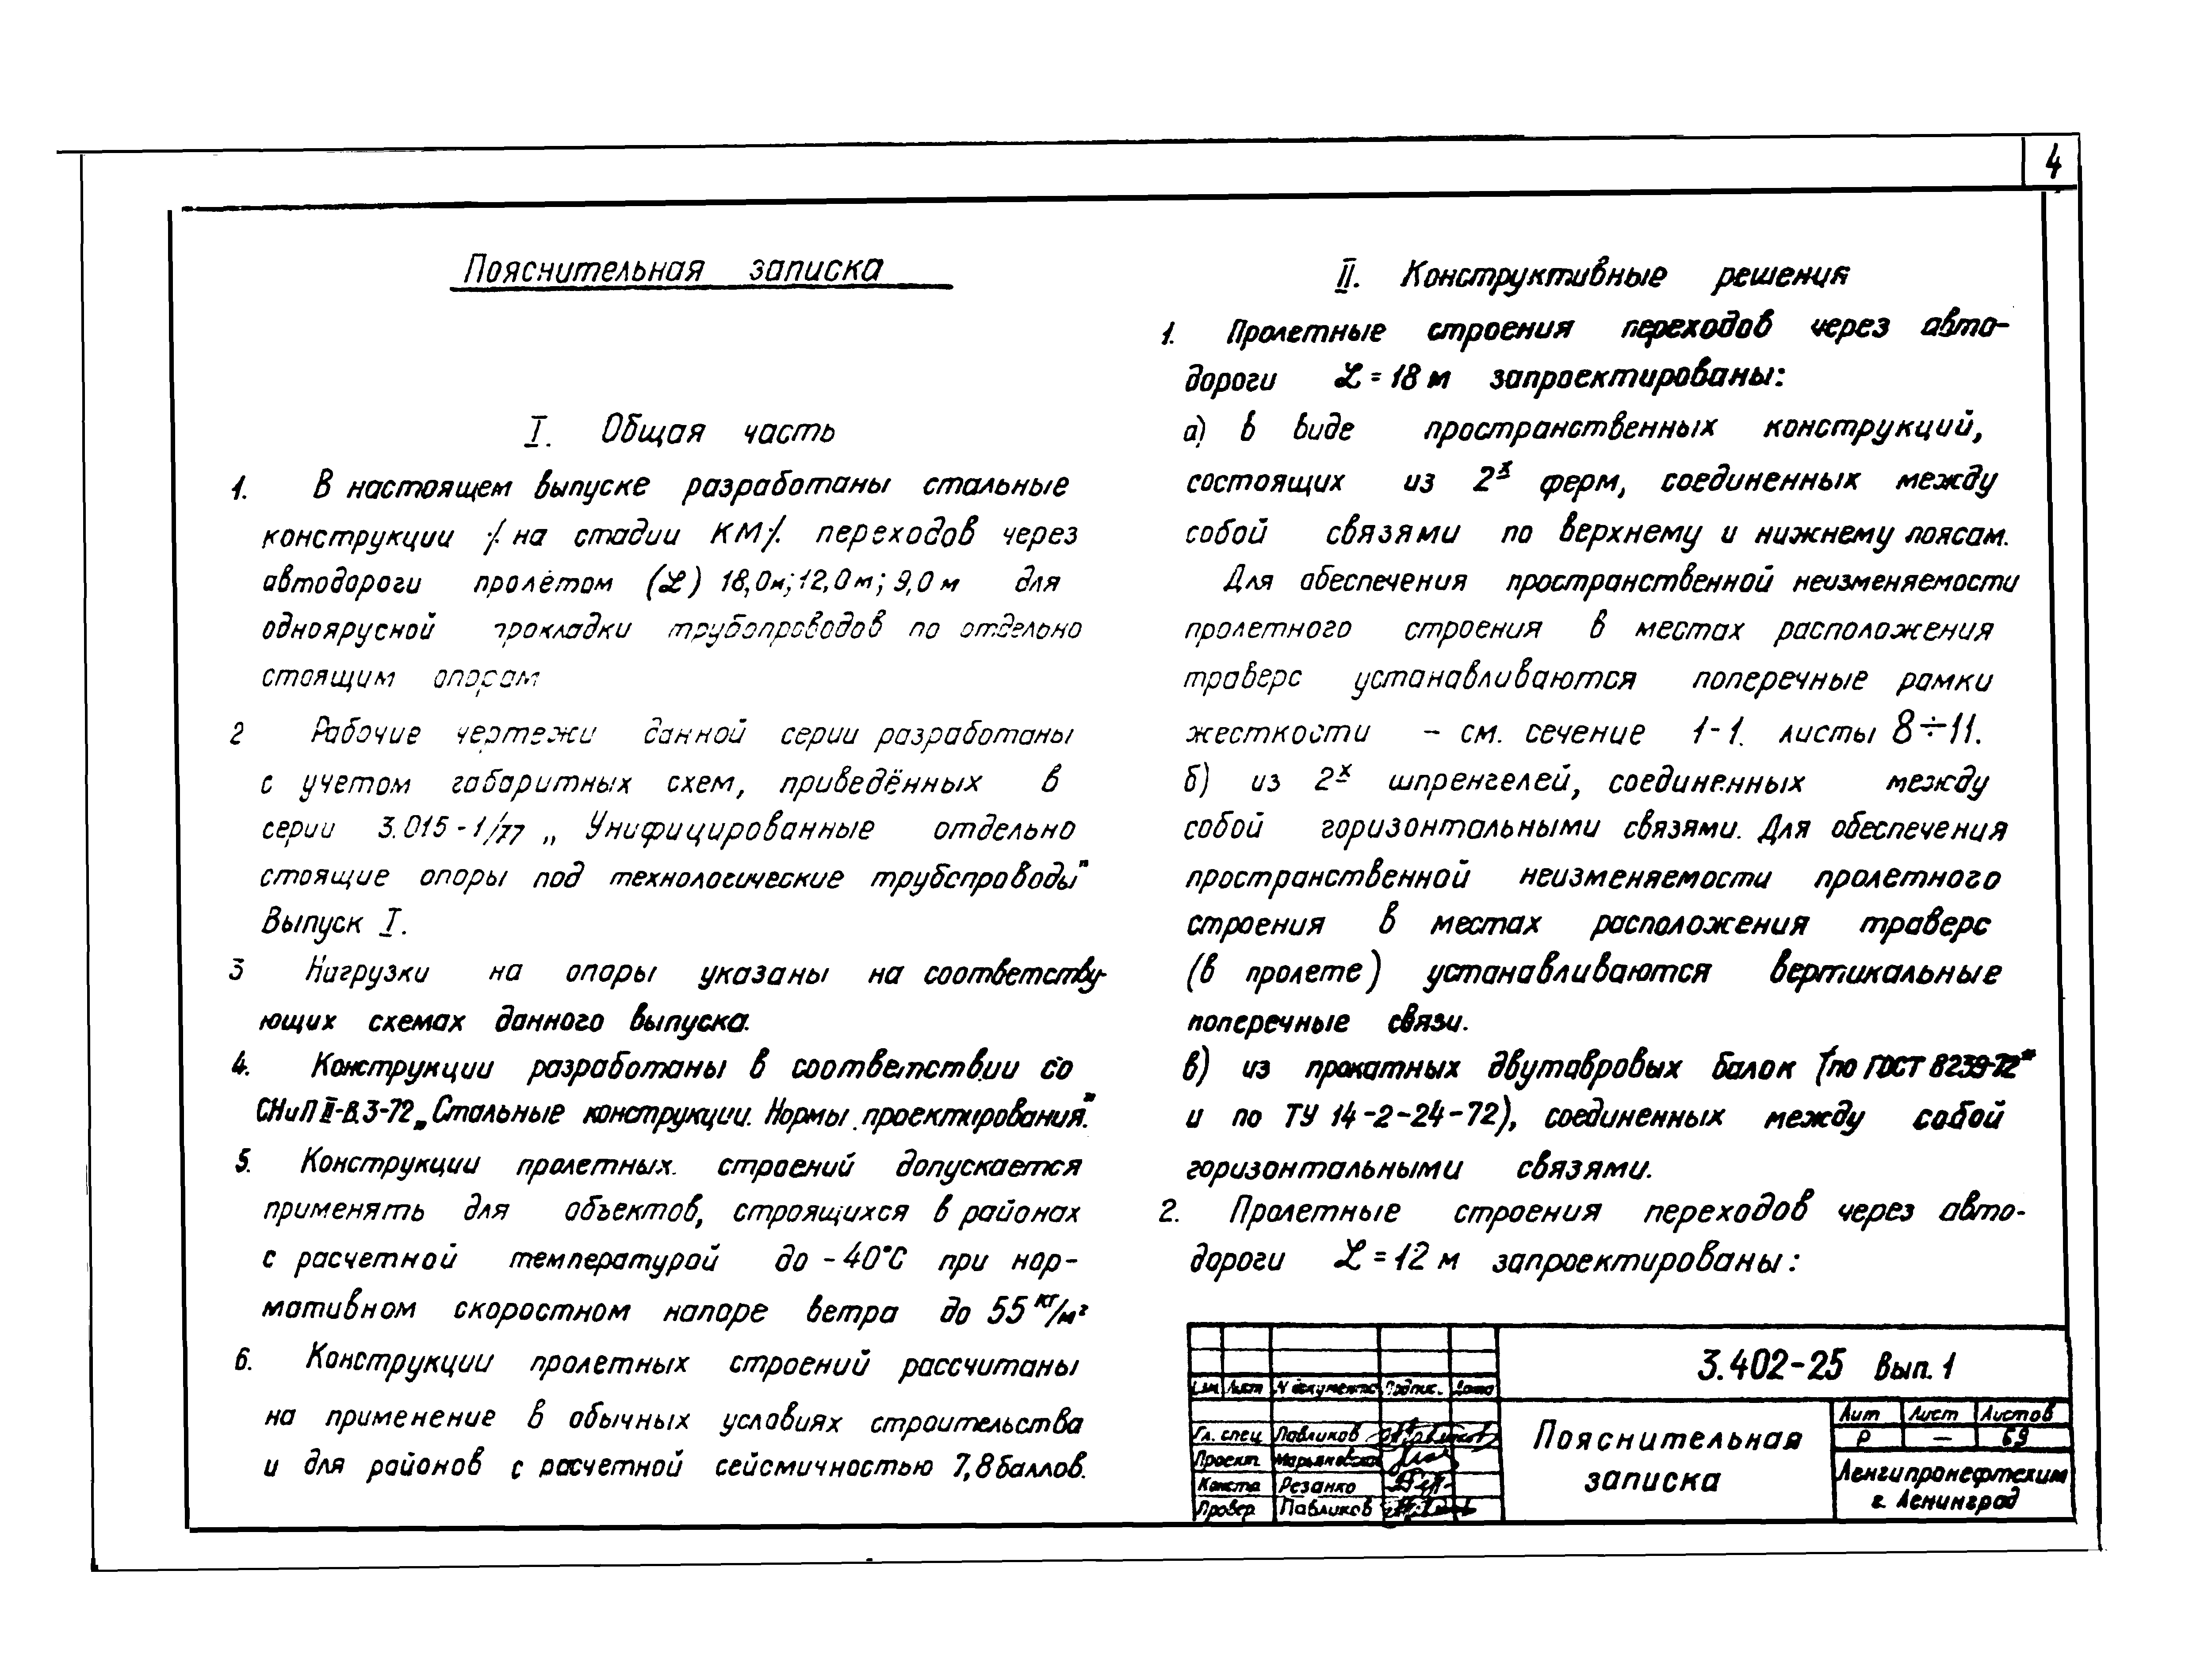 4
Пояснительная записка
I. Общая часть
1. В настоящем выпуске разработаны стальные
конструкции ⁒ на стадии КМ ⁒ переходов через
автодороги пролётом (L) 18,0м; 12,0м; 9,0м для
одноярусной прокладки трубопроводов по отдельно
стоящим опорам
2 Рабочие чертежи данной серии разработаны
с учетом габаритных схем, приведённых в
серии 3.015-1/77 „Унифицированные отдельно
стоящие опоры под технологические трубопроводы"
Выпуск I.
3 Нагрузки на опоры указаны на соответству-
ющих схемах данного выпуска.
4. Конструкции разработаны в соответствии со
СНиП II-В.3-72 „Стальные конструкции. Нормы проектирования".
5. Конструкции пролетных строений допускается
применять для объектов, строящихся в районах
с расчетной температурой до -40°С при нор-
мативном скоростном напоре ветра до 55 кг/м²
6. Конструкции пролетных строений рассчитаны
на применение в обычных условиях строительства
и для районов с расчетной сейсмичностью 7,8 баллов.
II. Конструктивные решения
1. Пролетные строения переходов через авто-
дороги L = 18 м запроектированы:
а) в виде пространственных конструкций,
состоящих из 2х ферм, соединенных между
собой связями по верхнему и нижнему поясам.
Для обеспечения пространственной неизменяемости
пролетного строения в местах расположения
траверс устанавливаются поперечные рамки
жесткости - см. сечение 1-1. листы 8÷11.
б) из 2х шпренгелей, соединенных между
собой горизонтальными связями. Для обеспечения
пространственной неизменяемости пролетного
строения в местах расположения траверс
(в пролете) устанавливаются вертикальные
поперечные связи.
в) из прокатных двутавровых балок (по ГОСТ 8239-72*
и по ТУ 14-2-24-72), соединенных между собой
горизонтальными связями.
2. Пролетные строения переходов через авто-
дороги L = 12 м запроектированы:
3.402-25 Вып. 1
Изм Лист N документа Подпис. Дата
Гл. спец Павликов
Проект Марьяновская
Констр Резанко
Провер Павликов
Пояснительная
записка
Лит Лист Листов
Р — 69
Ленгипронефтехим
г. Ленинград